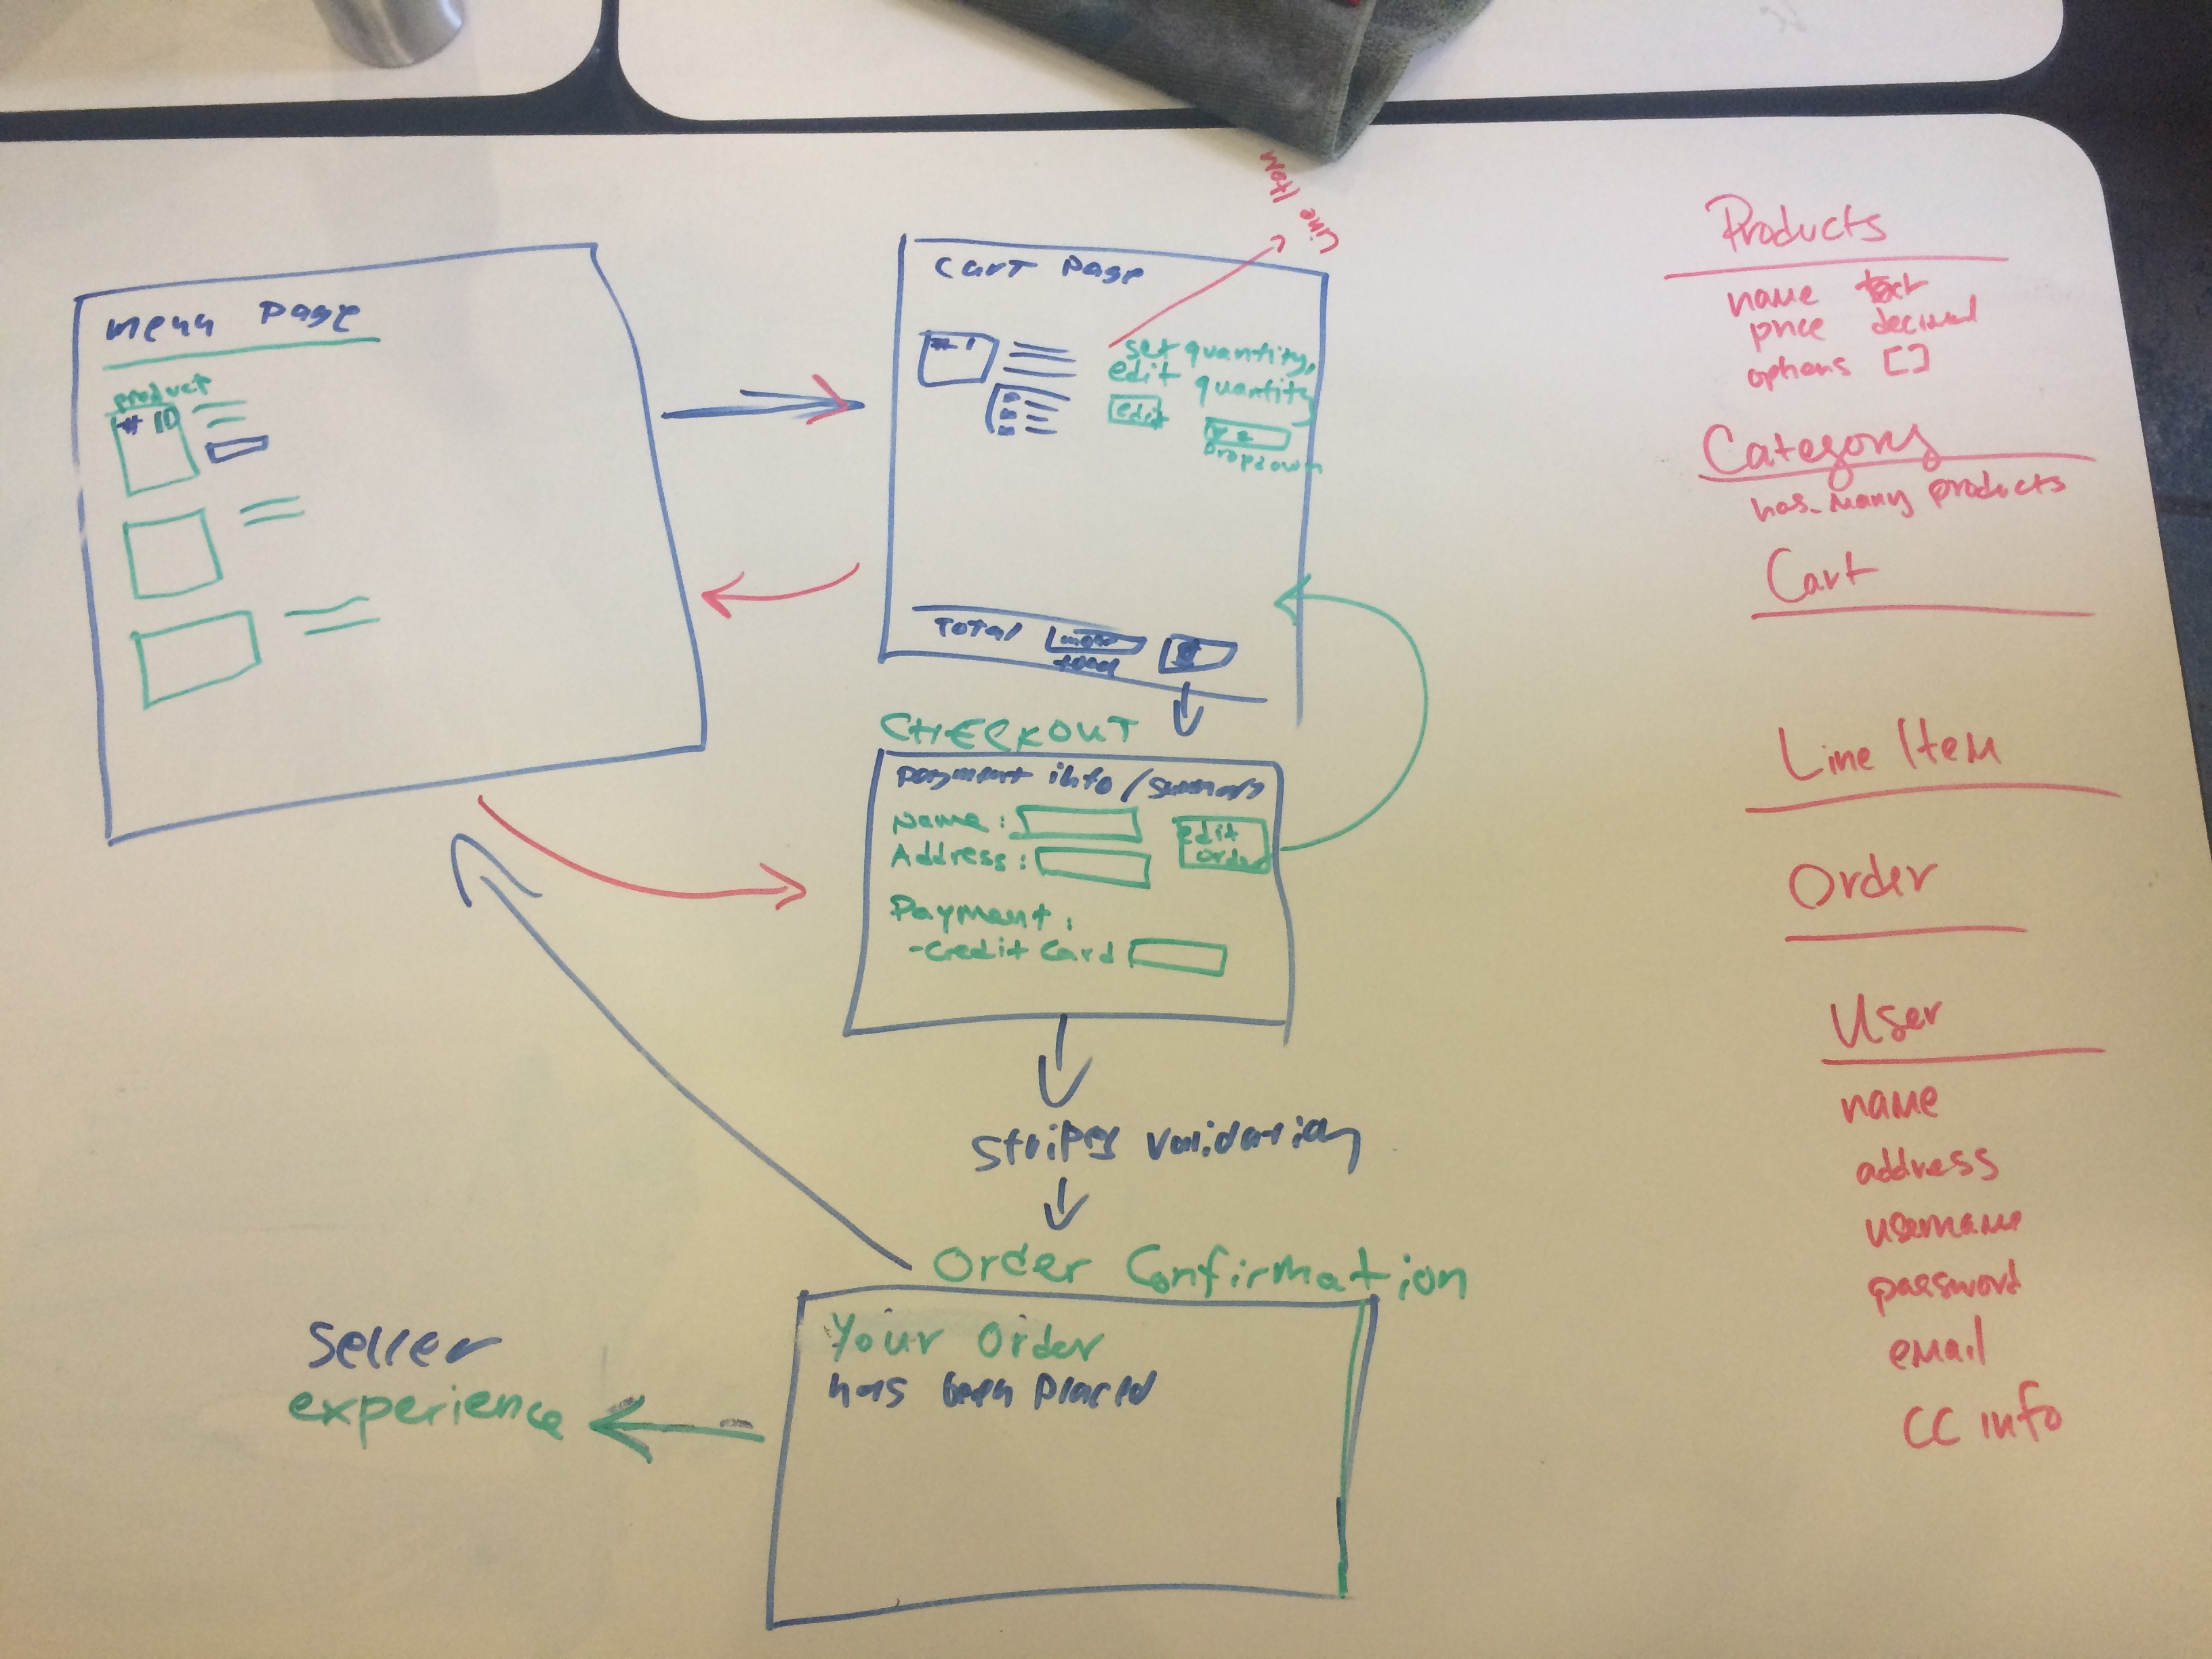 Menu Page
product
# 10
Line Item
Cart Page
# 1
set quantity,
edit quantity
edit
Dropdown
Total
CHECKOUT
payment info / summary
Name:
Address:
edit
order
Payment:
-Credit Card
Stripes validation
Order Confirmation
Your Order
has been placed
Seller
experience
Products
name text
price decimal
options []
Category
has_many products
Cart
Line Item
Order
User
name
address
username
password
email
CC info